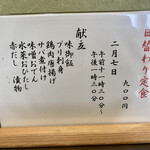 日替わり定食
九〇〇円
二月七日
午前十一時三〇分〜
午後一時三〇分
献立
味御飯
ブリ刺身
鶏肉唐揚げ
サバ煮付
味噌おでん
水菜おひたし
赤だし　漬物